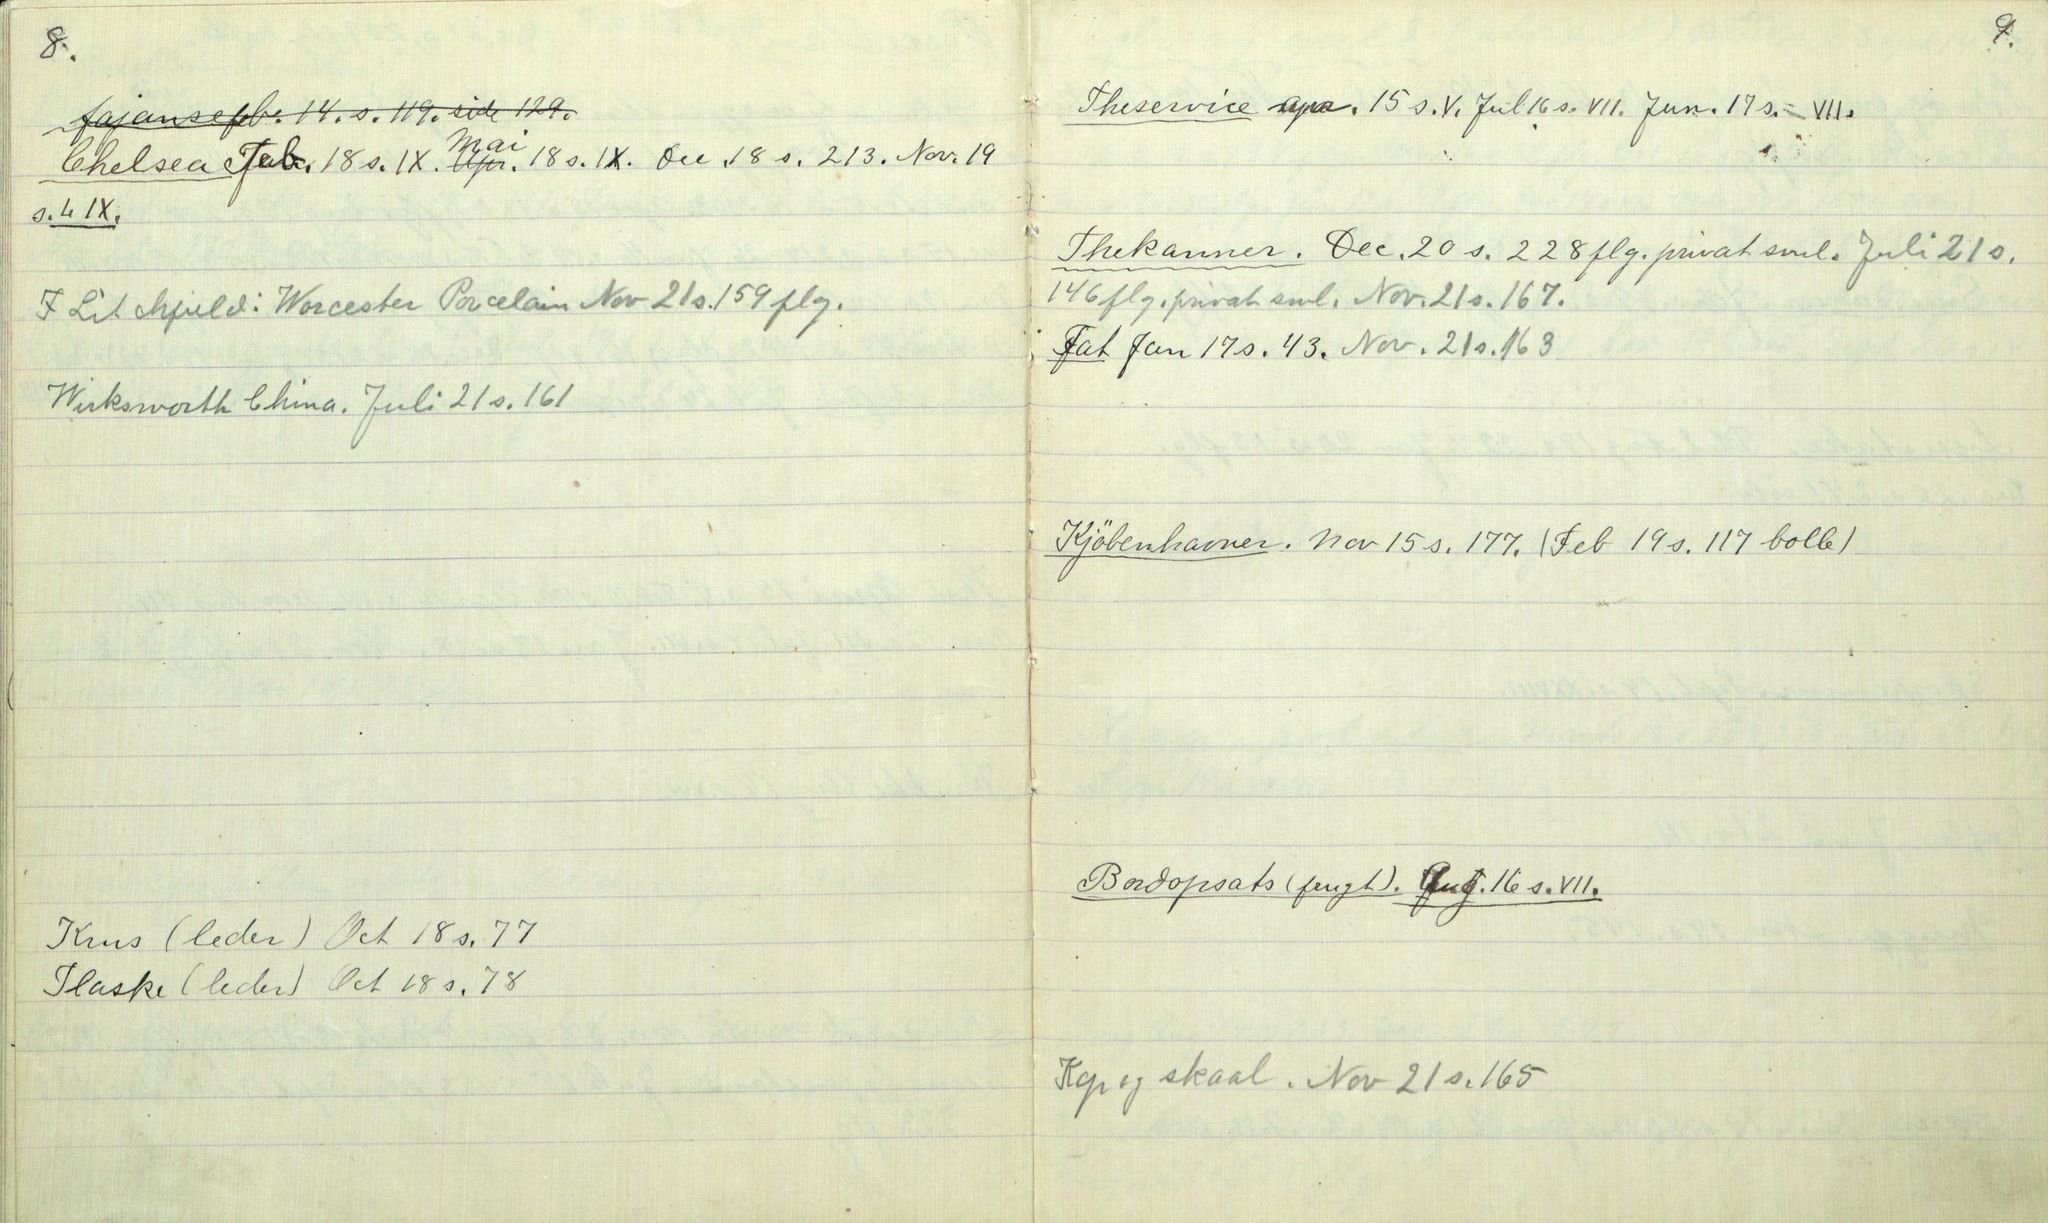 8.
fajanse feb. 14. s. 119. side 129.
Chelsea Feb. 18 s. IX. Mai Apr. 18 s. IX. Dec 18 s. 213. Nov. 19
s. 4 IX.
F Litchfield: Worcester Porcelain Nov 21 s. 159 flg.
Wirksworth China. Juli 21 s. 161
Krus (leder) Oct 18 s. 77
Flaske (leder) Oct 18 s. 78
9.
Theservice apr. 15 s. V. Jul 16 s. VII. Jun. 17 s. VII.
Thekanner. Dec. 20 s. 228 flg. privat sml. Juli 21 s.
146 flg. privat sml. Nov. 21 s. 167.
Fat Jan 17 s. 43. Nov. 21 s. 163
Kjöbenhavner. Nov 15 s. 177. (Feb 19 s. 117 bolle)
Bordopsats (frugt). Aug. 16 s. VII.
Kop og skaal. Nov 21 s. 165